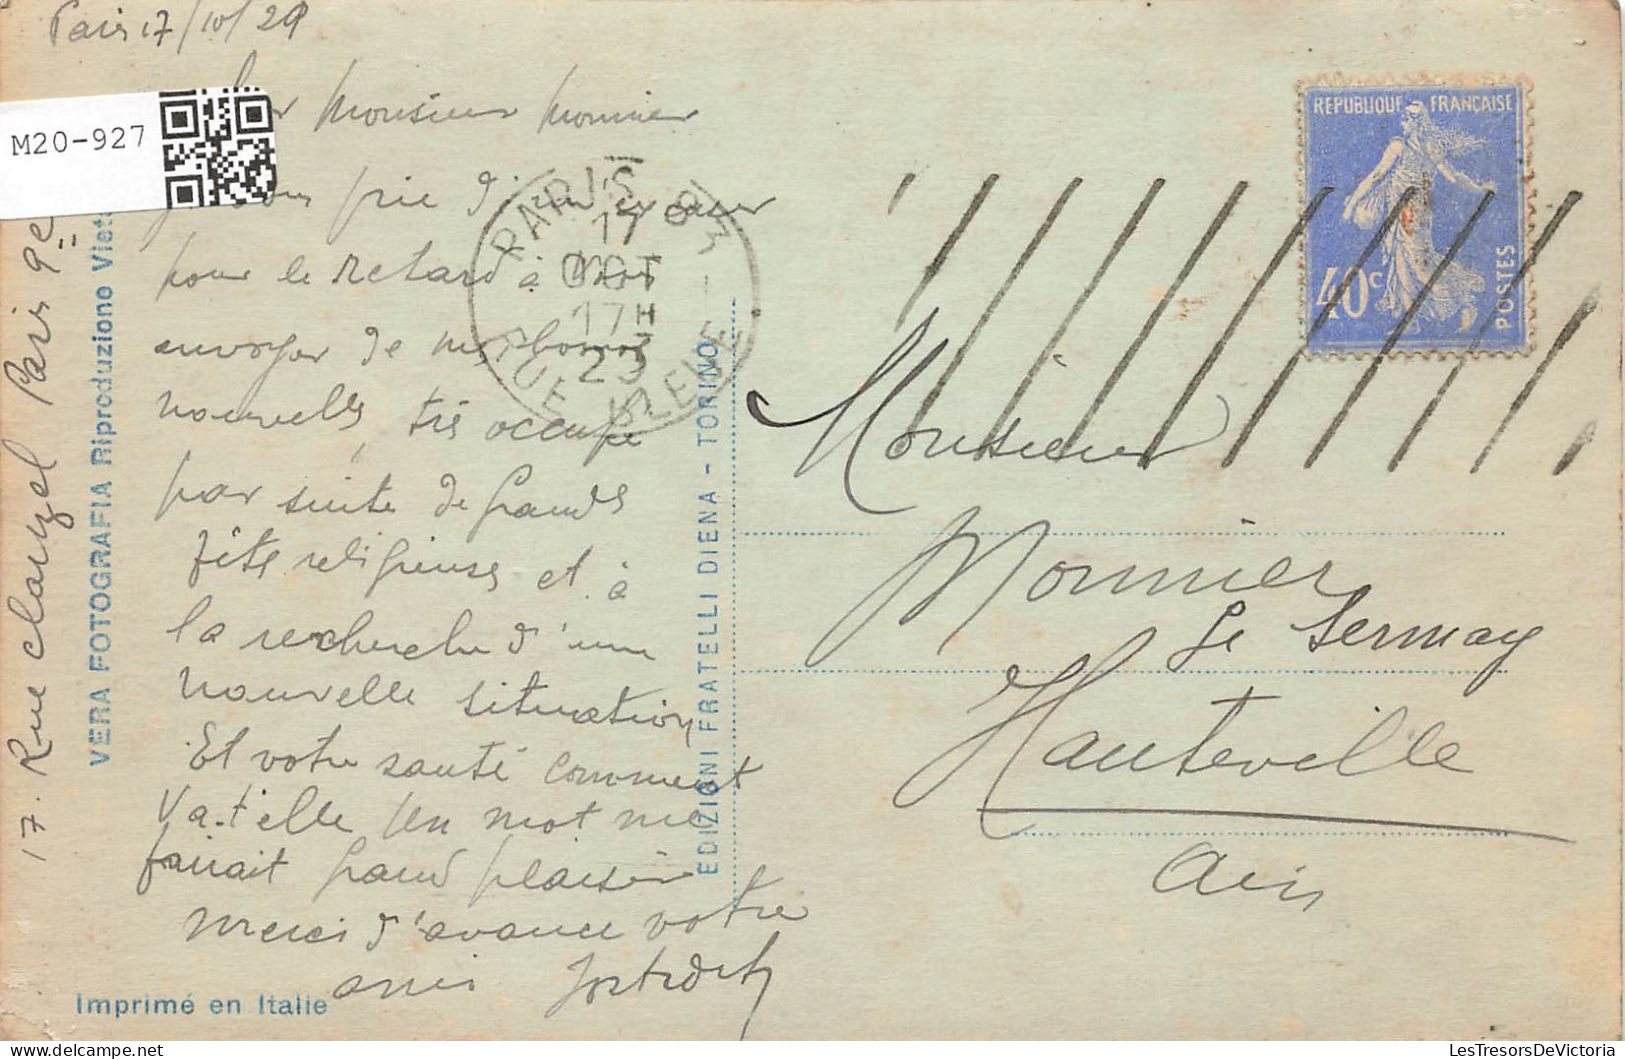 Paris 17/10/29
M20-927
Monsieur Monnier
prie d'
pour le retard à vous
envoyer de mes bonnes
nouvelles, très occupé
par suite de grandes
fêtes religieuses et à
la recherche d'une
nouvelle situation
Et votre santé comment
va-t'elle un mot me
ferait grand plaisir
merci d'avance votre
ami
17. Rue Clauzel Paris 9e
VERA FOTOGRAFIA Riproduzione Vieta
Imprimé en Italie
EDIZIONI FRATELLI DIENA - TORINO
PARIS
17
OCT
17H
REPUBLIQUE FRANÇAISE
40c
POSTES
Monsieur
Monnier
Le Sermay
Hauteville
Ain
LesTresorsDeVictoria
delcampe.net